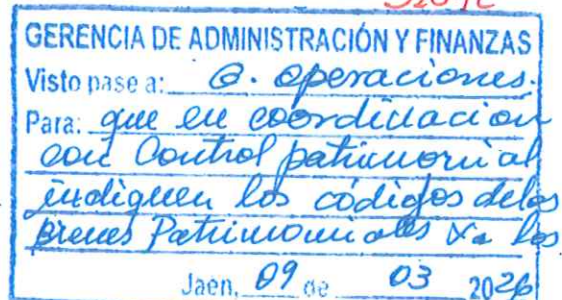 GERENCIA DE ADMINISTRACIÓN Y FINANZAS
Visto pase a: G. Operaciones.
Para: que en coordinación
con Control patrimonial
indiquen los códigos de los
Bienes Patrimoniales x a los
Jaén, 09 de 03 2026